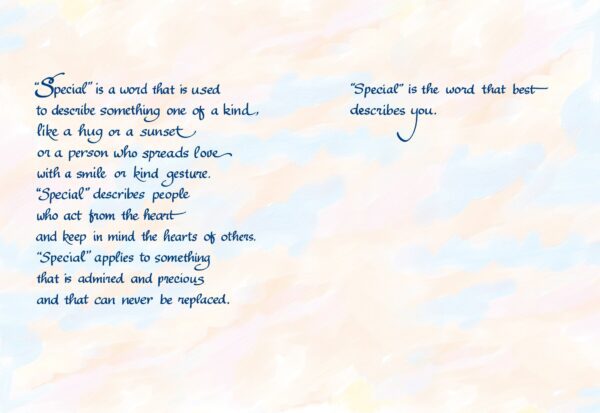 "Special" is a word that is used
to describe something one of a kind,
like a hug or a sunset
or a person who spreads love
with a smile or kind gesture.
"Special" describes people
who act from the heart
and keep in mind the hearts of others.
"Special" applies to something
that is admired and precious
and that can never be replaced.
"Special" is the word that best
describes you.